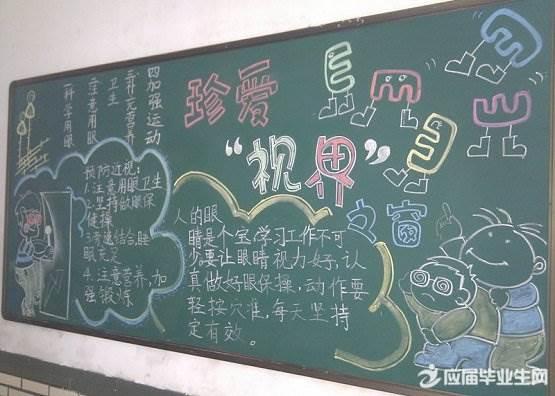 一科学用眼
二注意用眼
卫生
三补充营养
四加强运动
珍爱
“视界”
之窗
预防近视:
1.注意用眼卫生
2.坚持做眼保
健操
3.劳逸结合睡
眠充足
4.注意营养,加
强锻炼
人的眼
睛是个宝,学习工作不可
少,要让眼睛视力好,认
真做好眼保操,动作要
轻按穴准,每天坚持
定有效。
应届毕业生网